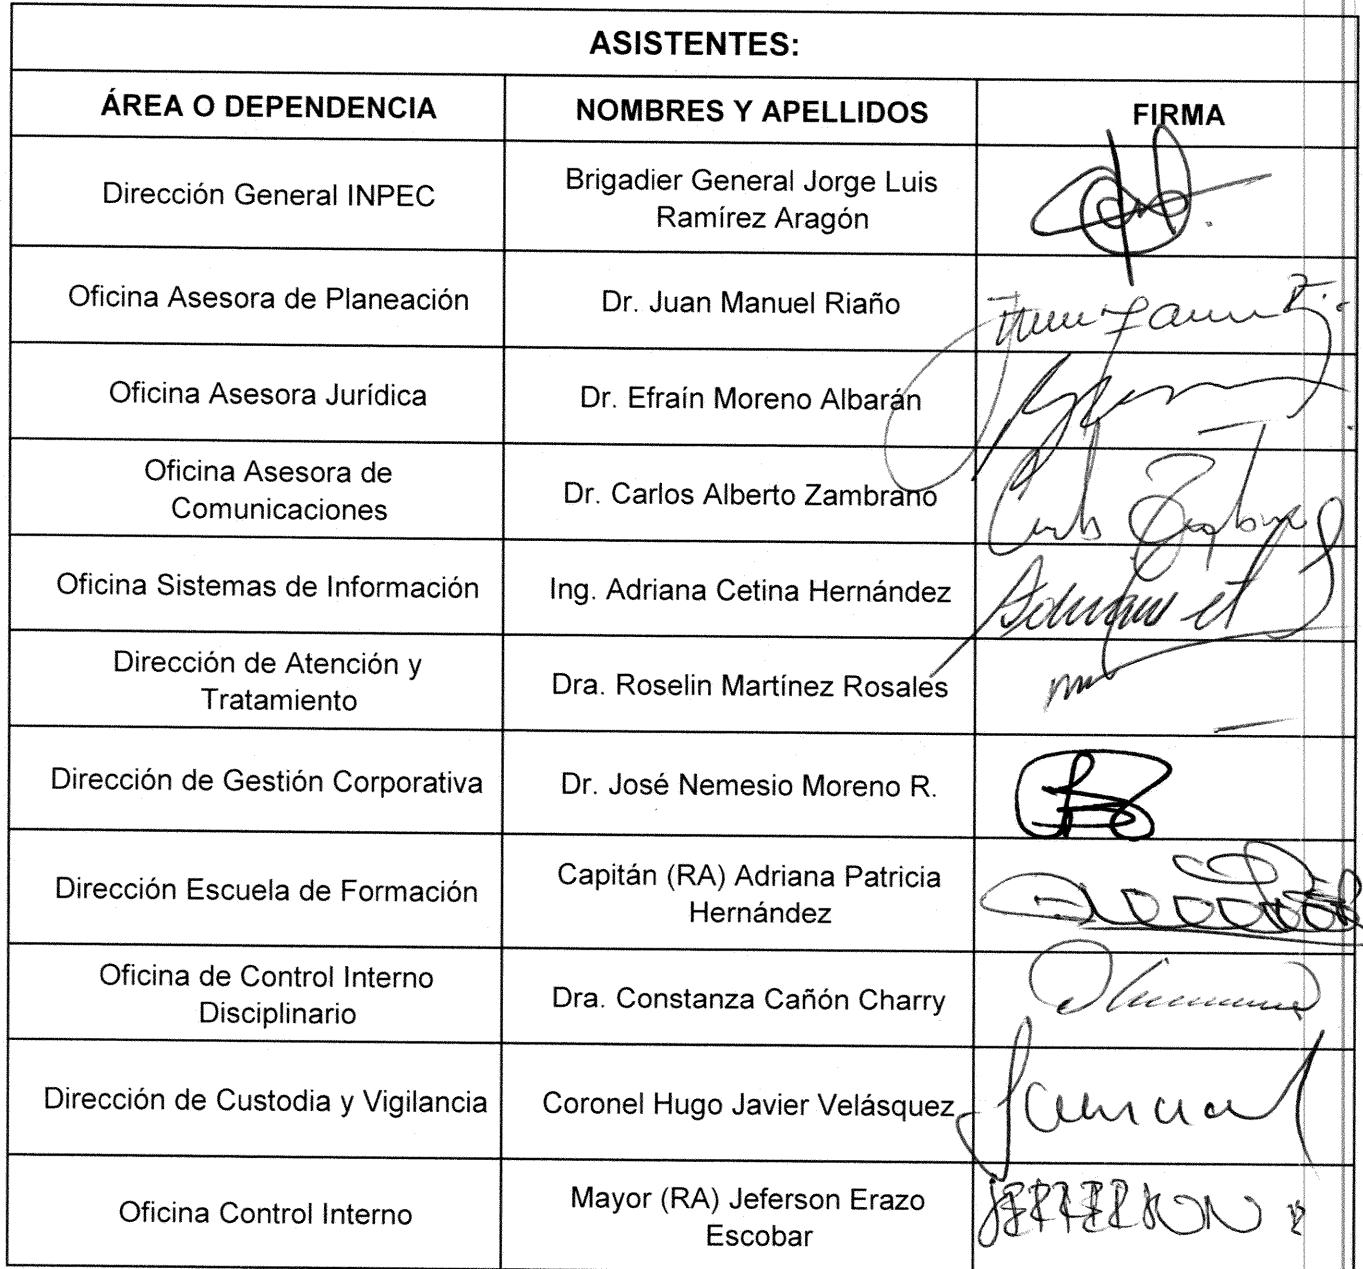 ASISTENTES:
ÁREA O DEPENDENCIA NOMBRES Y APELLIDOS FIRMA
Dirección General INPEC
Brigadier General Jorge Luis
Ramírez Aragón
Oficina Asesora de Planeación
Dr. Juan Manuel Riaño
Oficina Asesora Jurídica
Dr. Efraín Moreno Albarán
Oficina Asesora de
Comunicaciones
Dr. Carlos Alberto Zambrano
Oficina Sistemas de Información
Ing. Adriana Cetina Hernández
Dirección de Atención y
Tratamiento
Dra. Roselin Martínez Rosales
Dirección de Gestión Corporativa
Dr. José Nemesio Moreno R.
Dirección Escuela de Formación
Capitán (RA) Adriana Patricia
Hernández
Oficina de Control Interno
Disciplinario
Dra. Constanza Cañón Charry
Dirección de Custodia y Vigilancia
Coronel Hugo Javier Velásquez
Oficina Control Interno
Mayor (RA) Jeferson Erazo
Escobar